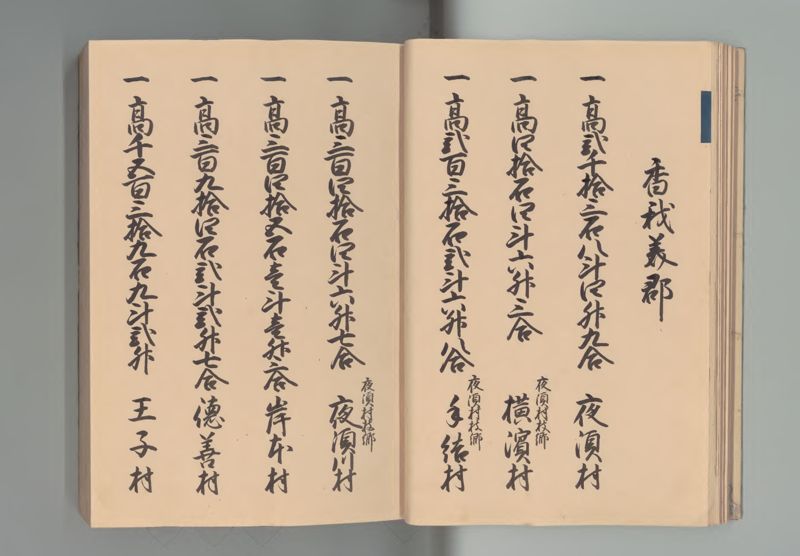 香我美郡
一 高弐千拾三石八斗四升九合 夜須村
一 高四拾石四斗六升三合 夜須村枝郷 横濱村
一 高弐百三拾石弐斗六升八合 夜須村枝郷 手結村
一 高三百四拾石四斗六升七合 夜須村枝郷 夜須川村
一 高三百四拾五石壱斗壱升六合 岸本村
一 高三百九拾四石弐斗弐升七合 徳善村
一 高千五百三拾九石九斗弐升 王子村